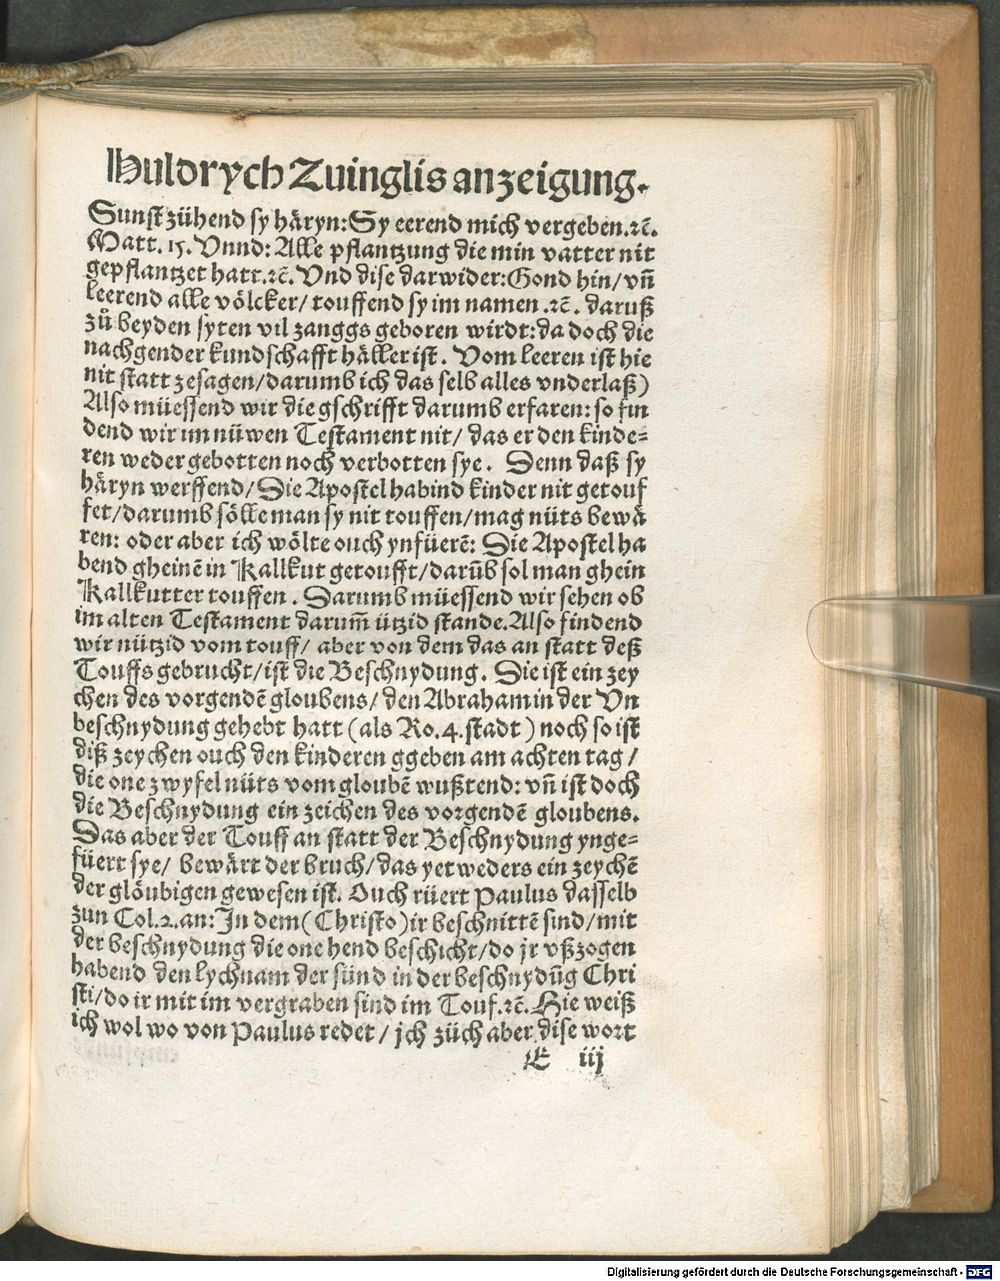 Huldrych Zuinglis anzeigung.
Sunst zühend sy häryn: Sy eerend mich vergeben. ꝛc̄.
Matt. 15. Vnnd: Alle pflantzung die min vatter nit
gepflantzet hatt. ꝛc̄. Vnd dise darwider: Gond hin/ vñ
leerend alle völcker/ touffend sy im namen. ꝛc̄. daruß
zů beyden syten vil zanggs geboren wirdt: da doch die
nachgender kundschafft häller ist. Vom leeren ist hie
nit statt zesagen/ darumb ich das selb alles vnderlaß)
Also müessend wir die gschrifft darumb erfaren: so fin
dend wir im nüwen Testament nit/ das er den kinde⸗
ren weder gebotten noch verbotten sye. Denn daß sy
häryn werffend/ Die Apostel habind kinder nit getouf
fet/ darumb sölle man sy nit touffen/ mag nüts bewä
ren: oder aber ich wölte ouch ynfüerē: Die Apostel ha
bend gheinē in Kallkut getoufft/ darūb sol man ghein
Kallkutter touffen. Darumb müessend wir sehen ob
im alten Testament darum̄ ützid stande. Also findend
wir nützid vom touff/ aber von dem das an statt deß
Touffs gebrucht/ ist die Beschnydung. Die ist ein zey
chen des vorgendē gloubens/ den Abraham in der Vn
beschnydung gehebt hatt (als Ro. 4. stadt) noch so ist
diß zeychen ouch den kinderen ggeben am achten tag/
die one zwyfel nüts vom gloubē wußtend: vñ ist doch
die Beschnydung ein zeichen des vorgendē gloubens.
Das aber der Touff an statt der Beschnydung ynge⸗
füert sye/ bewärt der bruch/ das yetweders ein zeychē
der glöubigen gewesen ist. Ouch rüert Paulus dasselb
zun Col. 2. an: In dem (Christo) ir beschnittē sind/ mit
der beschnydung die one hend beschicht/ do jr vßzogen
habend den lychnam der sünd in der beschnydūg Chri
sti/ do ir mit im vergraben sind im Touf. ꝛc̄. Hie weiß
ich wol wo von Paulus redet/ jch züch aber dise wort
E iij
Digitalisierung gefördert durch die Deutsche Forschungsgemeinschaft - DFG